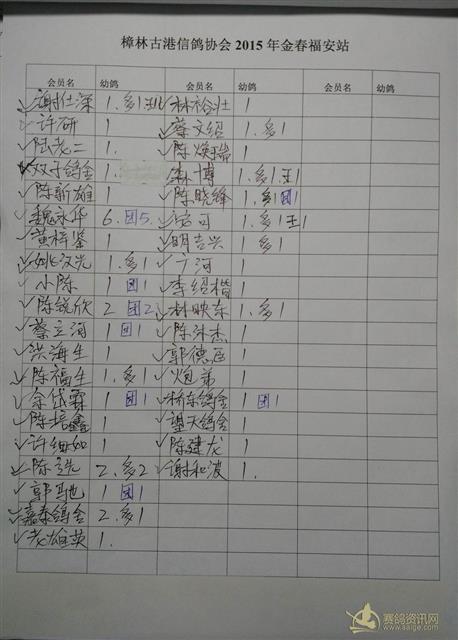 樟林古港信鸽协会 2015 年金春福安站
会员名 幼鸽 会员名 幼鸽 会员名 幼鸽
谢仕深 1.多1 林裕壮 1
许研 1 蔡文绍 1.多1
陆老二 1. 陈焕 1
双子鸽舍 1. 林博 1.多1.王1
陈新雄 1 陈晓锋 1.多1 团1
魏永华 6.团5. 1.多1.王1
黄梓鉴 1 明吉兴 1.多1
姚汉光 1.多1 宁河 1
小陈 1 团1 李绍楷 1
陈锐欣 2 团2 林映东 1.多1
蔡立河 1 团1 陈沐杰 1
洪海生 1 郭德 1
陈福生 1.多1 炮弟 1
余岱霖 1 团1 桥东鸽舍 1 团1
陈培鑫 1 望天鸽舍 1
许细如 1 陈建龙 1
陈 2.多2 谢和波 1.
郭 1 团1
嘉泰鸽舍 2.多1
老雄英 1.
赛鸽资讯网
www.aaige.com